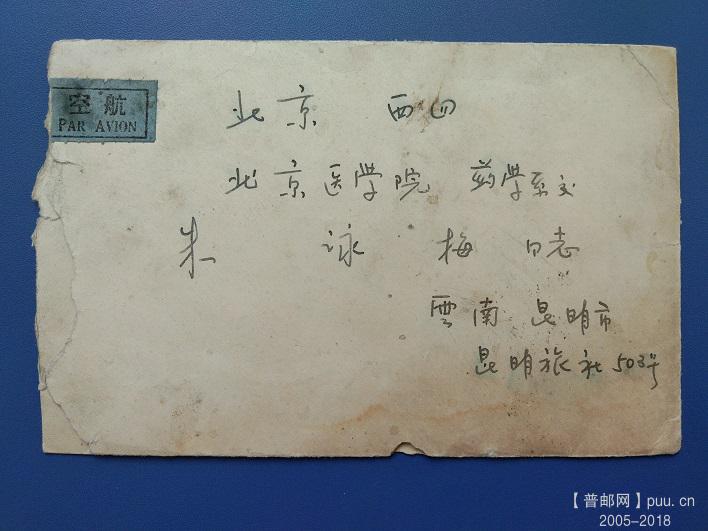 空航
PAR AVION
北京 西四
北京医学院 药学系交
朱 詠 梅 同志
雲南 昆明市
昆明旅社503号
【普邮网】puu.cn
2005-2018